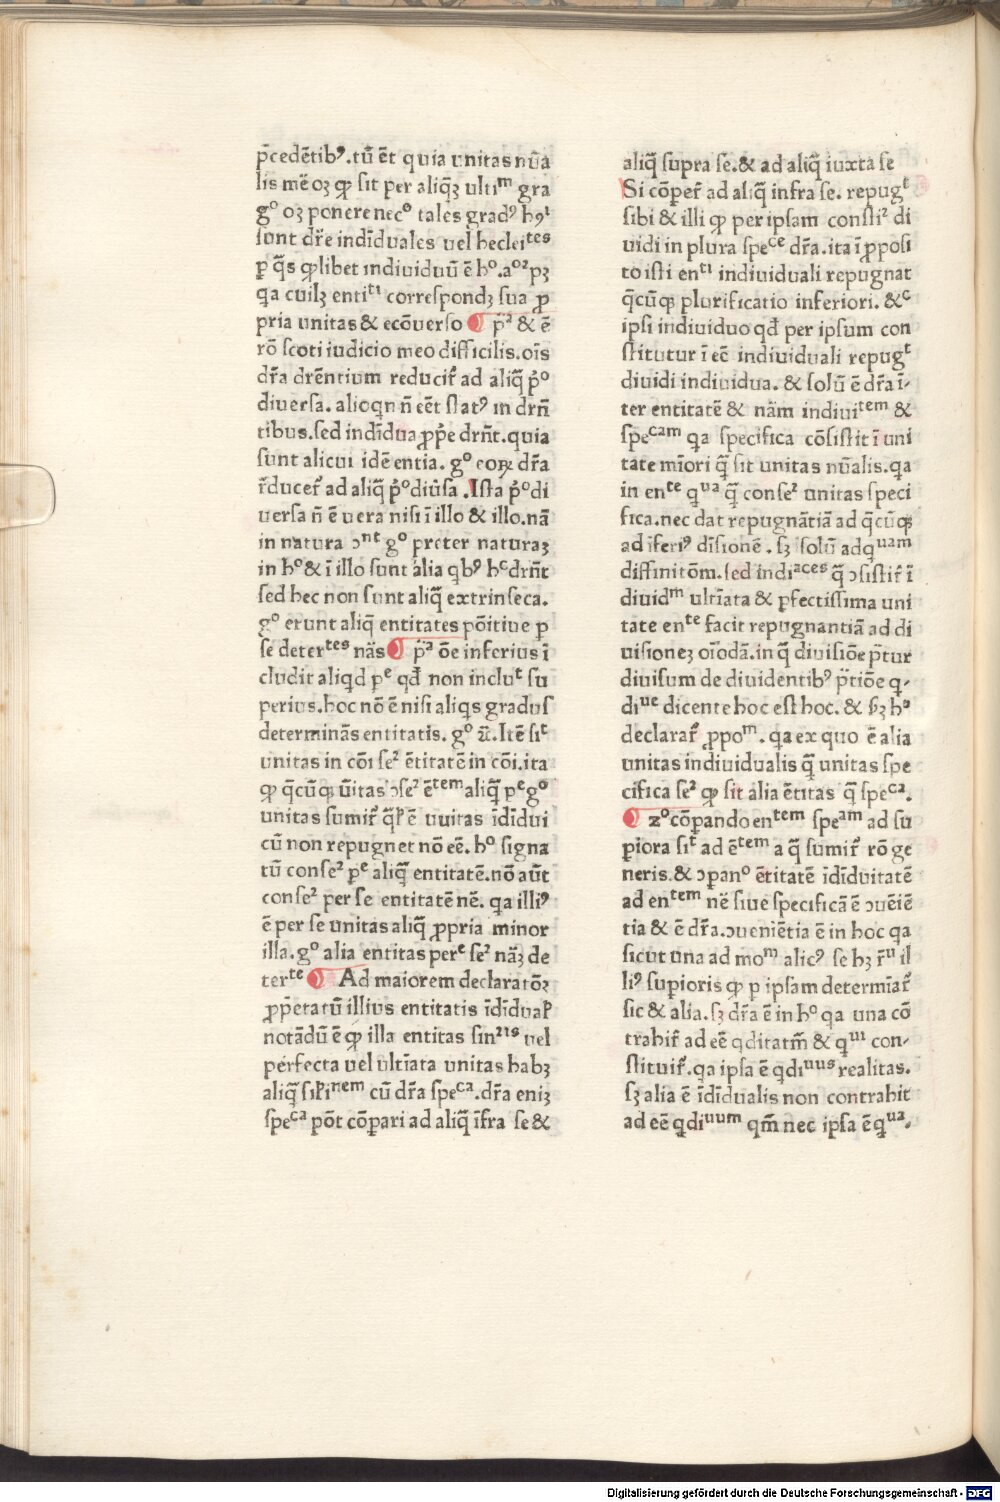 p̄cedētibꝰ.tū ēt quia unitas nūa
lis mē oꝫ ꝙ sit per aliqꝫ ultiᵐ gra
gᵒ oꝫ ponere necᵒ tales gradꝰ hꝰ⁹ᶦ
sunt dr̄e indīduales uel hecleiᵗᵉˢ
ꝑ q̄s ꝙlibet indiuiduū ē hᵒ.aᵒ²pꝫ
qa cuilꝫ entiᵗᶦ correspondꝫ sua ꝓ
pria unitas & ecōuerso ¶ p̄ᵃ & ē
rō scoti iudicio meo difficilis.oīs
dr̄a drēntium reducit̄ ad aliq̄ p̄ᵒ
diuersa. alioqn n̄ eēt statꝰ in drn̄
tibus.sed indīdua ꝓp̄e drn̄t.quia
sunt alicui idē entia. gᵒ eoꝝ dr̄a
r̄ducet̄ ad aliq̄ p̄ᵒdiūsa .Ista p̄ᵒdi
uersa n̄ ē uera nisi ī illo & illo.nā
in natura ɔⁿᵗ gᵒ preter naturaꝫ
in hᵒ & ī illo sunt alia qbꝰ hᶜdrn̄t
sed hec non sunt aliq̄ extrinseca.
gᵒ erunt aliq̄ entitates pōitiue ꝑ
se deterᵗᵉˢ nās ¶ p̄ᵃ ōe inferius ī
cludit aliqd pᵉ qd̄ non incluᵗ su
perius.hoc nō ē nisi aliqs gradus
determinās entitatis. gᵒ ⁊c̄.Itē siᶜ
unitas in cōi se² ētitatē in cōi.ita
ꝙ q̄cūqꝫ ūitas ɔse² ēᵗᵉᵐ aliq̄ pᵉ gᵒ
unitas sumit̄ q̄ł ē uuitas īdīdui
cū non repugnet nō eē. hᵒ signa
tū conse² pᵉ aliq̄ entitatē.nō aūt
conse² per se entitatē nē. qa illiꝰ
ē per se unitas aliq̄ ꝓpria minor
illa.gᵒ alia entitas perᵉ se² nāꝫ de
terᵗᵉ ¶ Ad maiorem declaratōꝫ
ꝓp̄etatū illius entitatis īdīdual̄
notādū ē ꝙ illa entitas sin²ᶦˢ uel
perfecta uel ultīata unitas habꝫ
aliq̄ sił̄iⁿᵉᵐ cū dr̄a speᶜᵃ.dr̄a eniꝫ
speᶜᵃ pōt cōꝑari ad aliq̄ īfra se &
aliq̄ supra se.& ad aliq̄ iuxta se
Si cōꝑet̄ ad aliq̄ infra se. repugᵗ
sibi & illi ꝙ per ipsam consti² di
uidi in plura speᶜᵉ dr̄a.ita ī ꝓposi
to isti enᵗᶦ indiuiduali repugnat
q̄cūqꝫ plurificatio inferiori. &ᶜ
ipsi indiuiduo qd̄ per ipsum con
stitutur ī eē indiuiduali repugᵗ
diuidi indiuidua. & solū ē dr̄a ī-
ter entitatē & nām indiuiᵗᵉᵐ &
speᶜᵃᵐ qa specifica cōsistit ī uni
tate mīori q̄ sit unitas nūalis.qa
in enᵗᵉ qᵘᵃ q̄ conse² unitas speci
fica.nec dat repugnātiā ad q̄cūqꝫ
ad īferiꝰ dīsionē . sꝫ solū adqᵘᵃᵐ
diffinitōm.sed indiᵃᶜᵉˢ q̄ ɔsistit̄ ī
diuidᵐ ultīata & ꝑfectissima uni
tate enᵗᵉ facit repugnantiā ad di
uisioneꝫ oīodā.in q̄ diuisiōe p̄tur
diuisum de diuidentibꝰ p̄tiōe q-
diᵘᵉ dicente hoc est hoc. & sꝫ hᵃ
declarat̄ ꝓpoᵐ. qa ex quo ē alia
unitas indiuidualis q̄ unitas spe
cifica se² ꝙ sit alia ētitas q̄ speᶜᵃ.
¶ 2ᵒ cōꝑando enᵗᵉᵐ speᵃᵐ ad su
ꝑiora siᵗ ad ēᵗᵉᵐ a q̄ sumit̄ rō ge
neris.& ɔꝑanᵒ ētitatē idīduitatē
ad enᵗᵉᵐ nē siue specificā ē ɔuēiē
tia & ē dr̄a.ɔueniētia ē in hoc qa
sicut una ad mōᵐ alicꝰ se hꝫ r̄ᵘ il
liꝰ suꝑioris ꝙ ꝑ ipsam determīat̄
sic & alia.sꝫ dr̄a ē in hᵒ qa una cō
trahit̄ ad eē qditatm̄ & qᵘᶦ con-
stituit̄.qa ipsa ē qdiᵘᵘˢ realitas.
sꝫ alia ē īdīdualis non contrahit
ad eē qdiᵘᵘᵐ qm̄ nec ipsa ē qᵘᵃ.
Digitalisierung gefördert durch die Deutsche Forschungsgemeinschaft - DFG